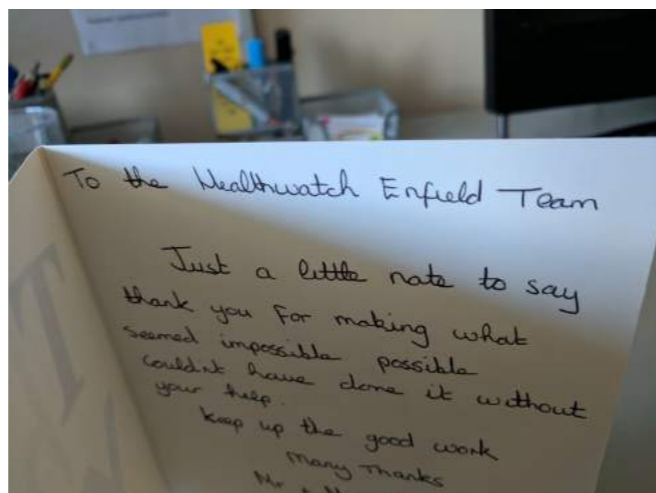 To the Healthwatch Enfield Team
Just a little note to say
thank you for making what
seemed impossible possible
couldn't have done it without
your help.
Keep up the good work
Many Thanks
Mr +